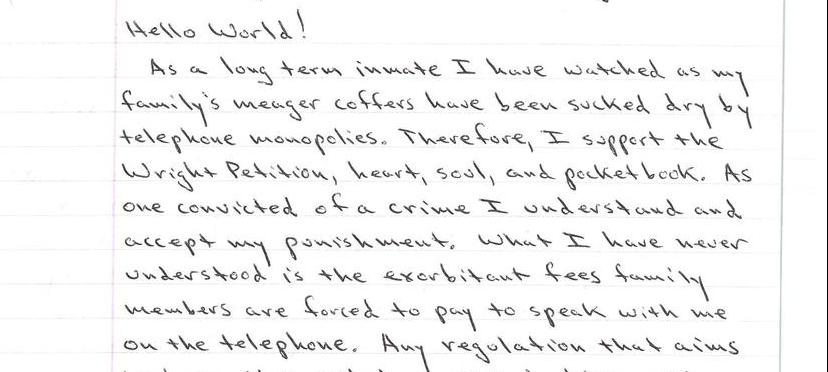 Hello World!
As a long term inmate I have watched as my
family's meager coffers have been sucked dry by
telephone monopolies. Therefore, I support the
Wright Petition, heart, soul, and pocketbook. As
one convicted of a crime I understand and
accept my punishment. What I have never
understood is the exorbitant fees family
members are forced to pay to speak with me
on the telephone. Any regulation that aims